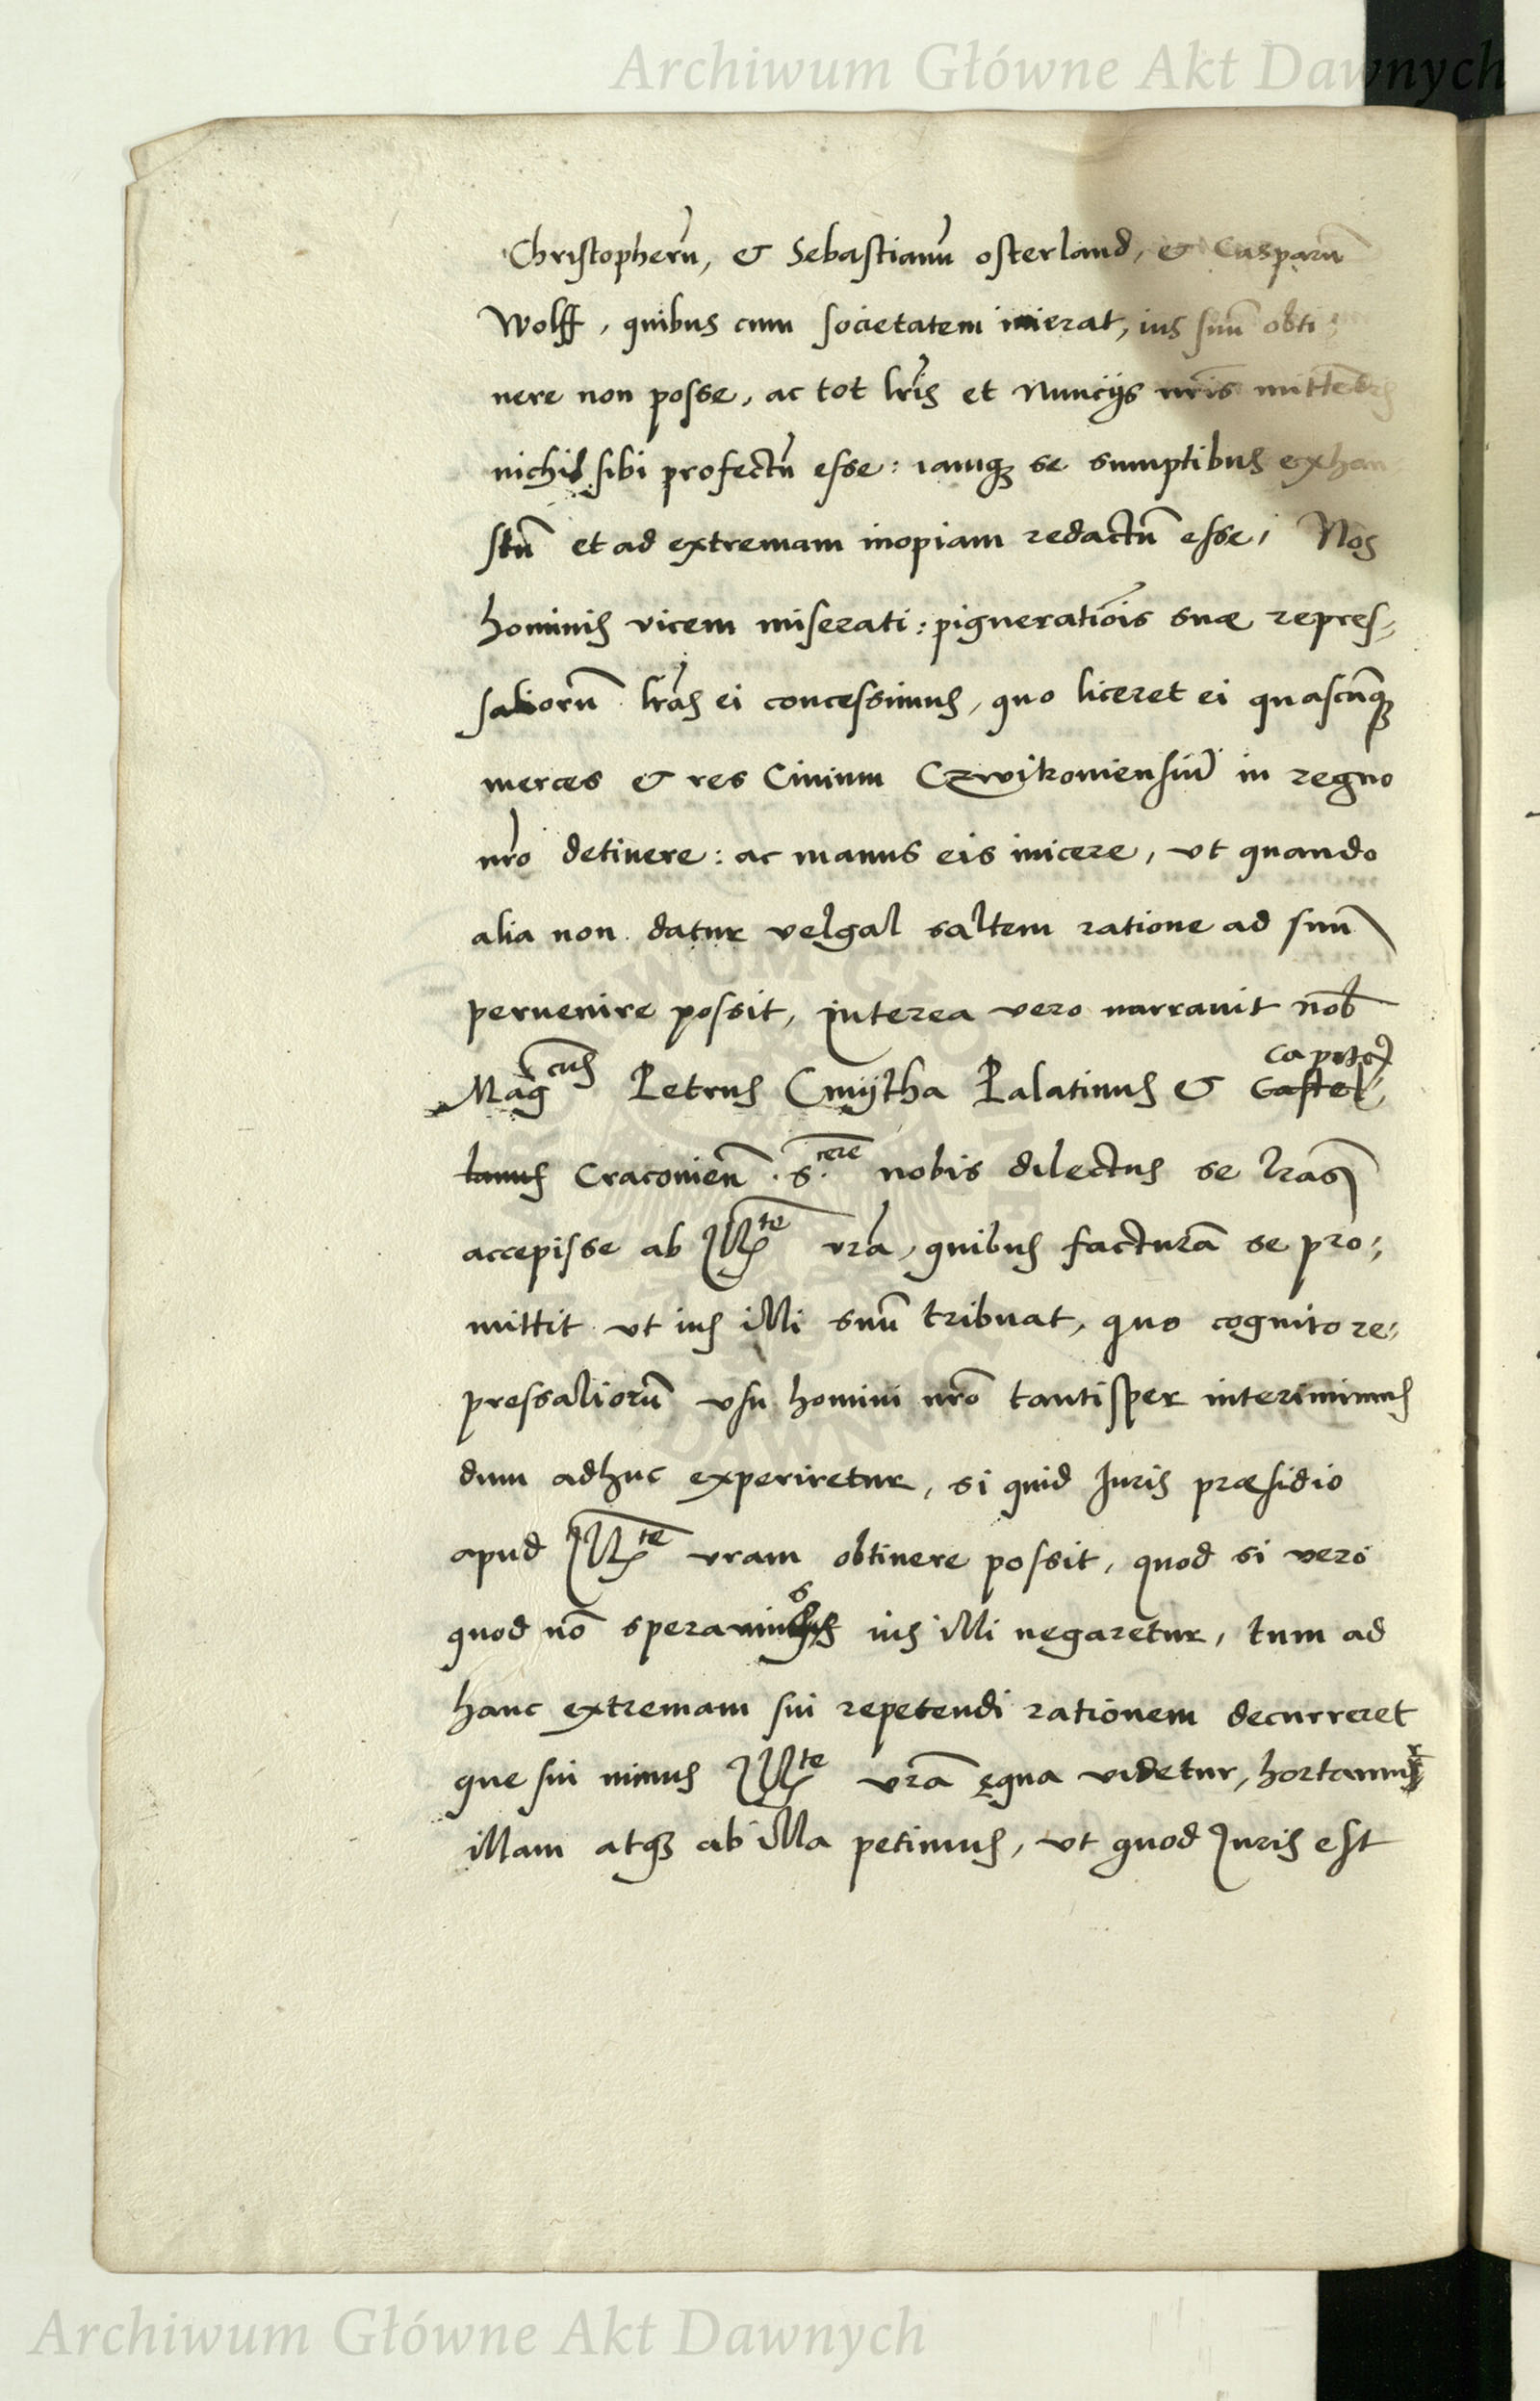 Archiwum Główne Akt Dawnych
Christopherū, & Sebastianū osterland, & Casparū
Wolff, quibus cum societatem inierat, ius suū obti
nere non posse, ac tot lr̄is et Nuncijs nr̄is
nichil sibi profectū esse: iamq; se sumptibus exhau
stū et ad extremam inopiam redactū esse, Nos
hominis vicem miserati: pigneratiōis suæ repres=
saliorū lr̄as ei concessimus, quo liceret ei quascūq;
merces & res Ciuium Czwikouiensiū in regno
nr̄o detinere: ac manus eis inicere, vt quando
alia non datur vel saltem ratione ad suū
peruenire possit, interea vero narrauit nob̄
Capite
Mag̅cus Petrus Cmytha Palatinus & Castel=
lanus Cracouień. s.cere nobis dilectus se lr̄as
accepisse ab Ill.te vr̄a, quibus facturā se pro=
mittit vt ius illi suū tribuat, quo cognito re=
pressaliorū vsu homini nr̄o tantisper interimimus
dum adhuc experiretur, si quid Juris præsidio
apud Ill.te vram obtinere possit, quod si vero
quod nō speramus ius illi negaretur, tum ad
hanc extremam sui repetendi rationem decurreret
que sui minus Ill.te vr̄a ęqua videtur, hortamur
illam atq; ab illa petimus, vt quod Juris est
Archiwum Główne Akt Dawnych